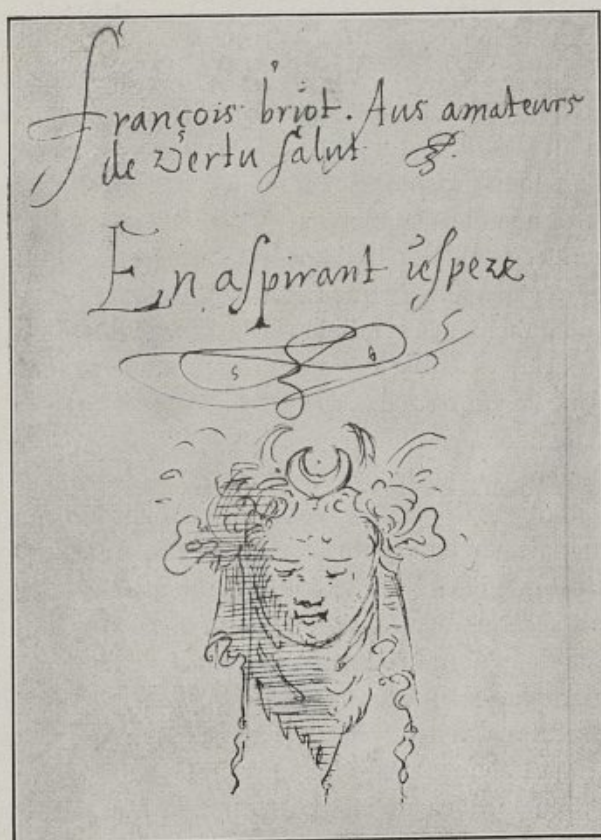 françois briot. Aus amateurs
de vertu salut
En aspirant i'espere